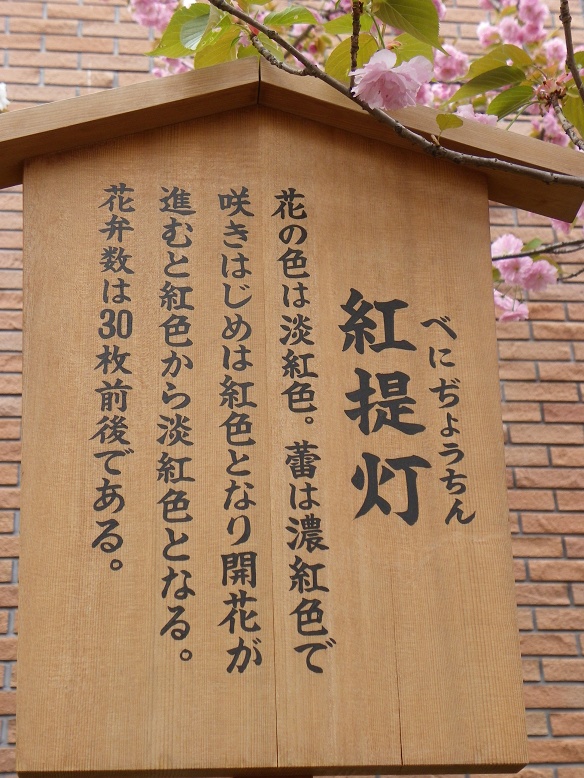 べにぢようちん
紅提灯
花の色は淡紅色。蕾は濃紅色で
咲きはじめは紅色となり開花が
進むと紅色から淡紅色となる。
花弁数は30枚前後である。